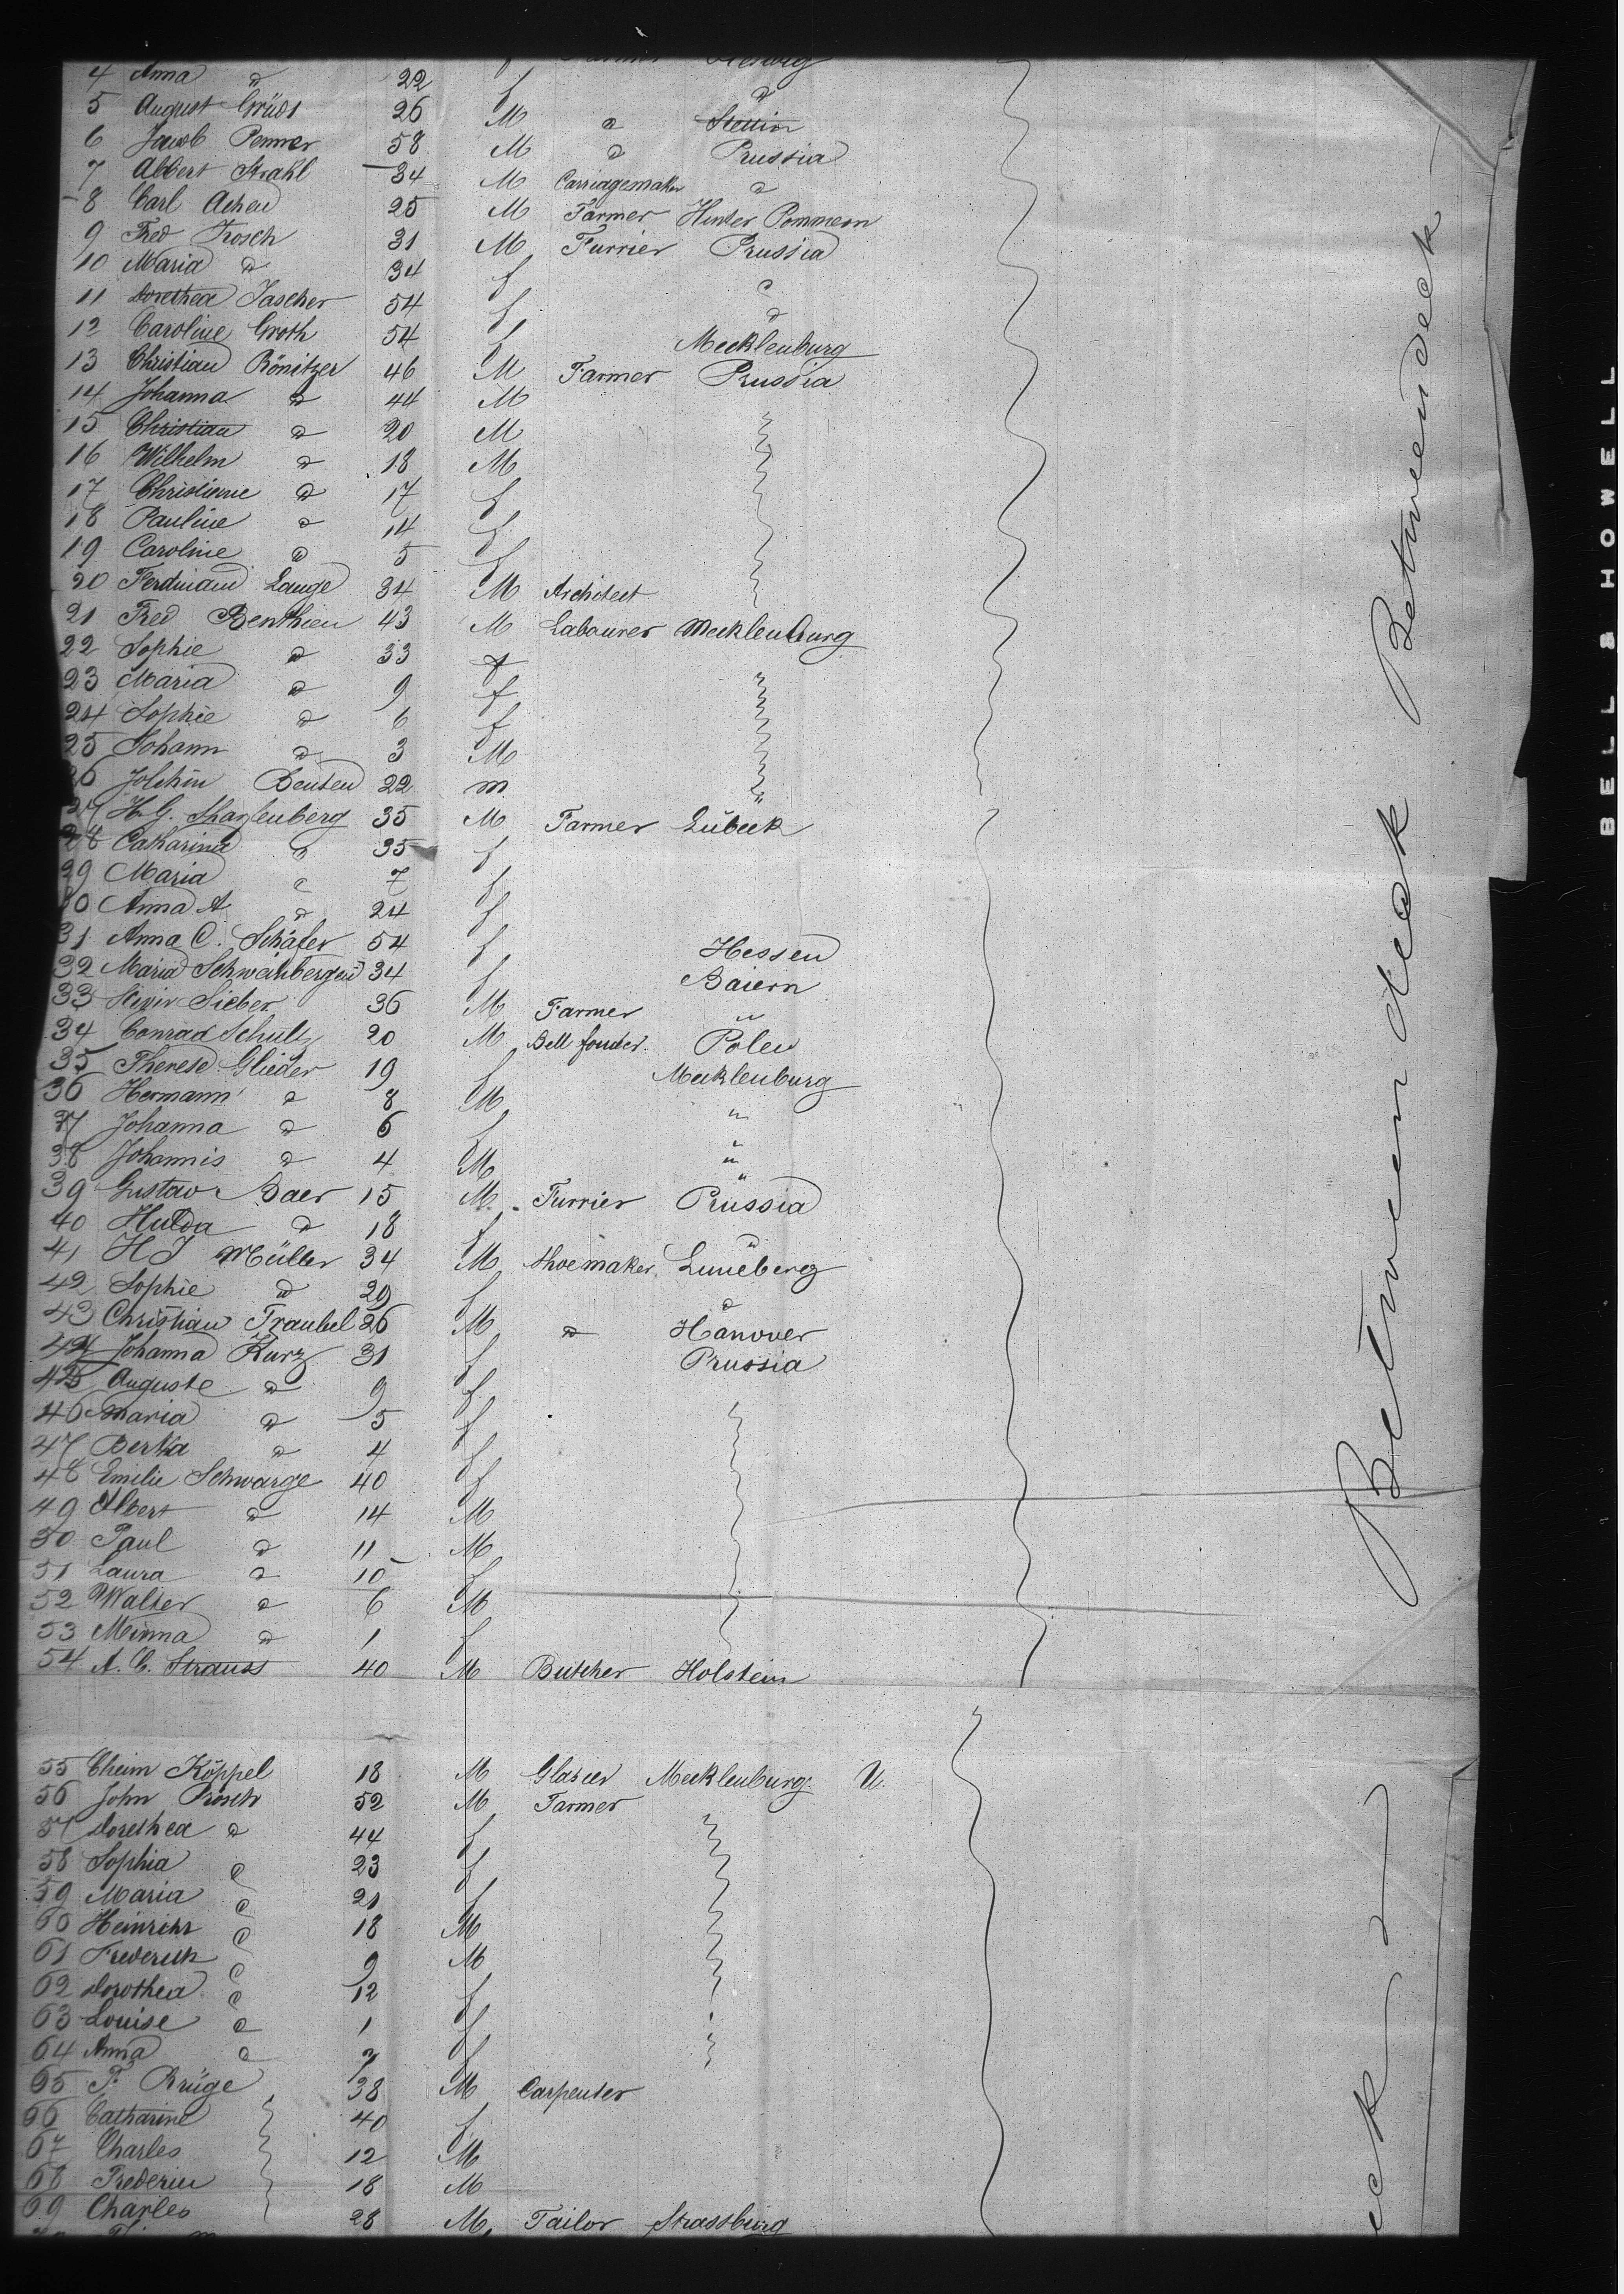 4 Anna " 22 f "
5 August Grüds 26 M " Stettin
6 Jacob Penner 58 M " Prussia
7 Albert Strahl 34 M Carriagemaker "
8 Carl Achen 25 M Farmer Hinter Pommern
9 Fred Krosch 31 M Furrier Prussia
10 Maria " 34 f "
11 Dorethea Jascher 54 f "
12 Caroline Groth 54 f Mecklenburg
13 Christian Bönitzer 46 M Farmer Prussia
14 Johanna " 44 M
15 Christian " 20 M
16 Wilhelm " 18 M
17 Christiane " 17 f
18 Pauline " 14 f
19 Caroline " 5 f
20 Ferdinand Lange 34 M Architect
21 Fred Benthien 43 M Labourer Mecklenburg
22 Sophie " 33 f
23 Maria " 9 f
24 Sophie " 6 f
25 Johann " 3 M
26 Bentsen 22 m
27 H. G. 35 M Farmer Lübeck
28 Catharina " 35 f
29 Maria " 7 f
30 Anna A " 24 f
31 Anna C. Schäfer 54 f Hessen
32 Maria 34 f Baiern
33 Sieber 36 M Farmer "
34 Conrad Schultz 20 M Bell fouder. Polen
35 Therese Glieder 19 f Mecklenburg
36 Hermann " 8 M "
37 Johanna " 6 f "
38 Johannis " 4 M "
39 Gustav Baer 15 M Furrier Prussia
40 Hulda " 18 f "
41 H J Müller 34 M Shoemaker Luneberg
42 Sophie " 29 f "
43 Christian Traubel 26 M " Hanover
44 Johanna Kurz 31 f Prussia
45 Auguste " 9 f
46 Maria " 5 f
47 Berta " 4 f
48 Emilie Schwarge 40 f
49 Albert " 14 M
50 Paul " 11 M
51 Laura " 10 f
52 Walter " 6 M
53 Minna " 1 f
54 A. C. Strauss 40 M Butcher Holstein
55 Cheim Köppel 18 M Glasier Mecklenburg U.
56 John 52 M Farmer
57 Dorethea " 44 f
58 Sophia " 23 f
59 Maria " 21 f
60 Heinrich " 18 M
61 Frederick " 9 M
62 Dorothea " 12 f
63 Louise " 1 f
64 Anna " 7 f
65 F. Krüge 38 M Carpenter
66 Catharine 40 f
67 Charles 12 M
68 18 M
69 Charles 28 M Tailor Strassburg
Betweendeck
Between deck
BELL & HOWELL